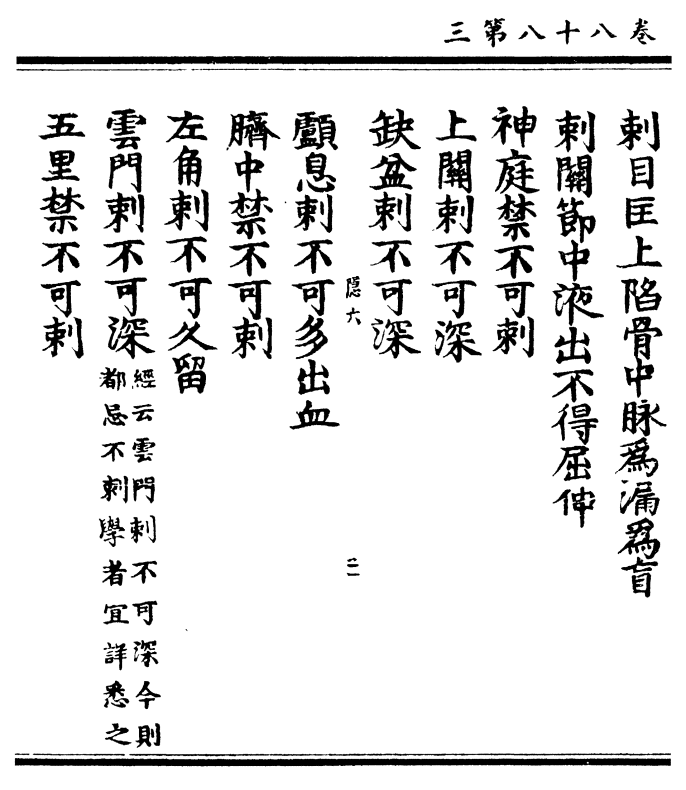 卷八十八第三
刺目匡上陷骨中脉爲漏爲盲
刺關節中液出不得屈伸
神庭禁不可刺
上關刺不可深
缺盆刺不可深
隱六
二
顱息刺不可多出血
臍中禁不可刺
左角刺不可久留
雲門刺不可深
經云雲門刺不可深今則
都忌不刺學者宜詳悉之
五里禁不可刺